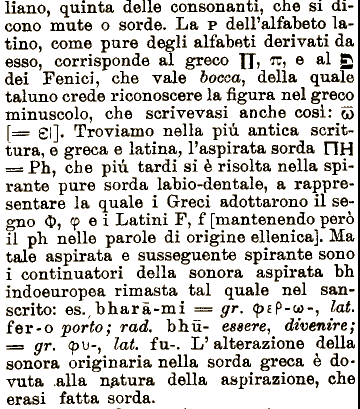 liano, quinta delle consonanti, che si di-
cono mute o sorde. La P dell'alfabeto la-
tino, come pure degli alfabeti derivati da
esso, corrisponde al greco Π, π, e al פ
dei Fenici, che vale bocca, della quale
taluno crede riconoscere la figura nel greco
minuscolo, che scrivevasi anche così: ϖ
[= ]. Troviamo nella più antica scrit-
tura, e greca e latina, l'aspirata sorda ΠΗ
= Ph, che più tardi si è risolta nella spi-
rante pure sorda labio-dentale, a rappre-
sentare la quale i Greci adottarono il se-
gno Φ, φ e i Latini F, f [mantenendo però
il ph nelle parole di origine ellenica]. Ma
tale aspirata e susseguente spirante sono
i continuatori della sonora aspirata bh
indoeuropea rimasta tal quale nel san-
scrito: es. bharā-mi = gr. φερ-ω-, lat.
fer-o porto; rad. bhū- essere, divenire;
= gr. φυ-, lat. fu-. L'alterazione della
sonora originaria nella sorda greca è do-
vuta alla natura della aspirazione, che
erasi fatta sorda.